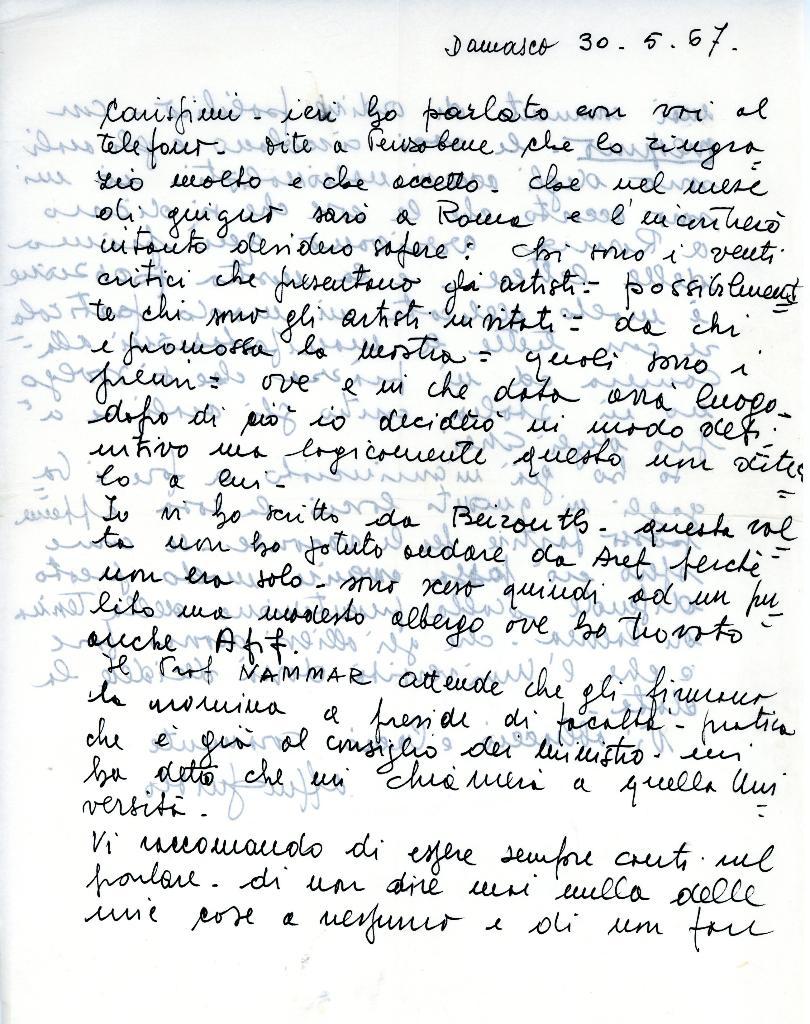 Damasco 30 - 5 . 67.
Carissimi - ieri ho parlato con voi al
telefono - dite a Tenzobene che lo ringra=
zio molto e che accetto - che nel mese
di giugno sarò a Roma e l'incontrerò
intanto desidero sapere: chi sono i venti
critici che presentano gli artisti = possibilment
te chi sono gli artisti invitati = da chi
è promossa la mostra = quali sono i
premi = ove e in che data avrà luogo -
dopo di ciò io deciderò in modo defi=
nitivo ma logicamente questo non dite=
lo a lui -
Io vi ho scritto da Beirouth - questa vol=
ta non ho potuto andare da Aref perchè
non ero solo - sono sceso quindi ad un pu=
lito ma modesto albergo ove ho trovato
anche Afif.
Il Prof NAMMAR attende che gli firmano
la nomina a preside di facoltà - pratica
che è già al consiglio dei ministro - mi
ha detto che mi chiamerà a quella Uni=
versità -
Vi raccomando di essere sempre cauti nel
parlare - di non dire mai nulla delle
mie cose a nessuno e di non fare